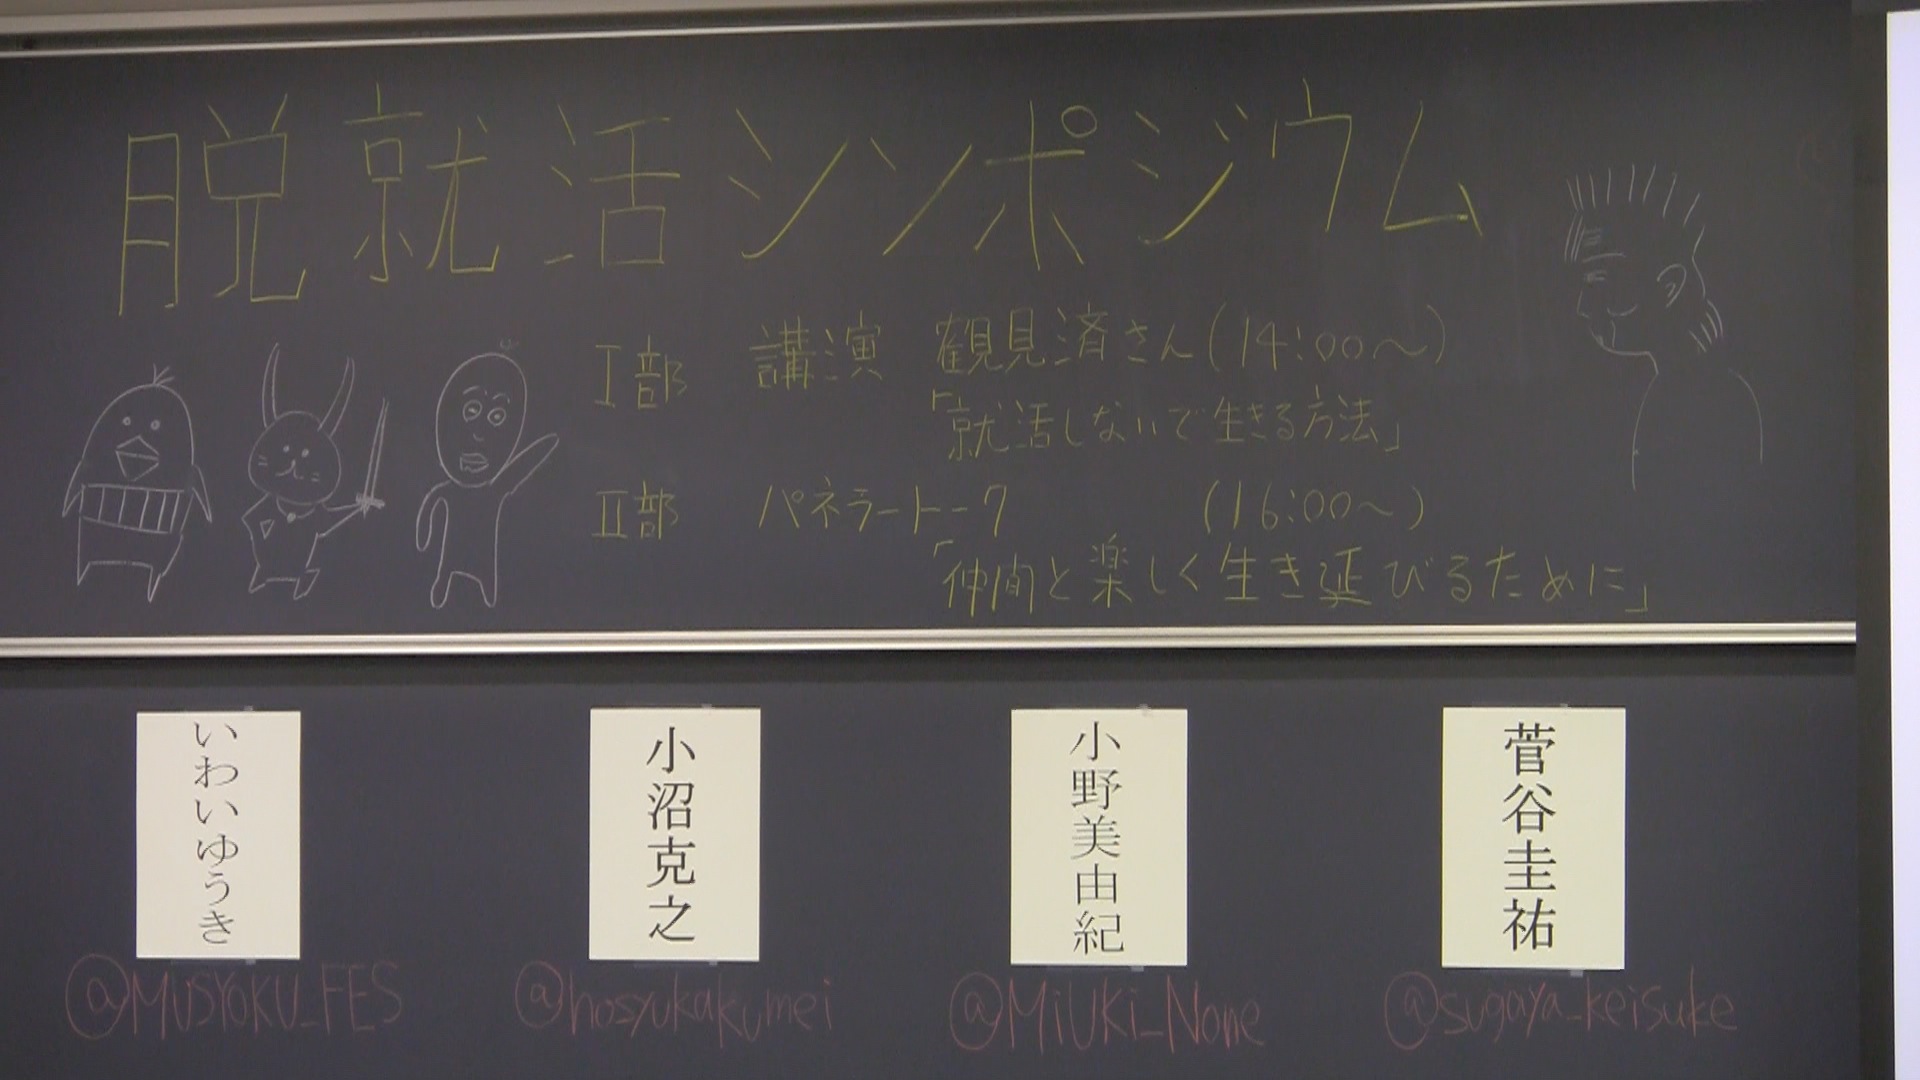 脱就活シンポジウム
I部 講演 鶴見済さん(14:00〜)
「就活しないで生きる方法」
II部 パネラートーク (16:00〜)
「仲間と楽しく生き延びるために」
いわいゆうき
小沼克之
小野美由紀
菅谷圭祐
@MUSYOKU_FES
@hosyukakumei
@MiUKi_None
@sugaya_keisuke